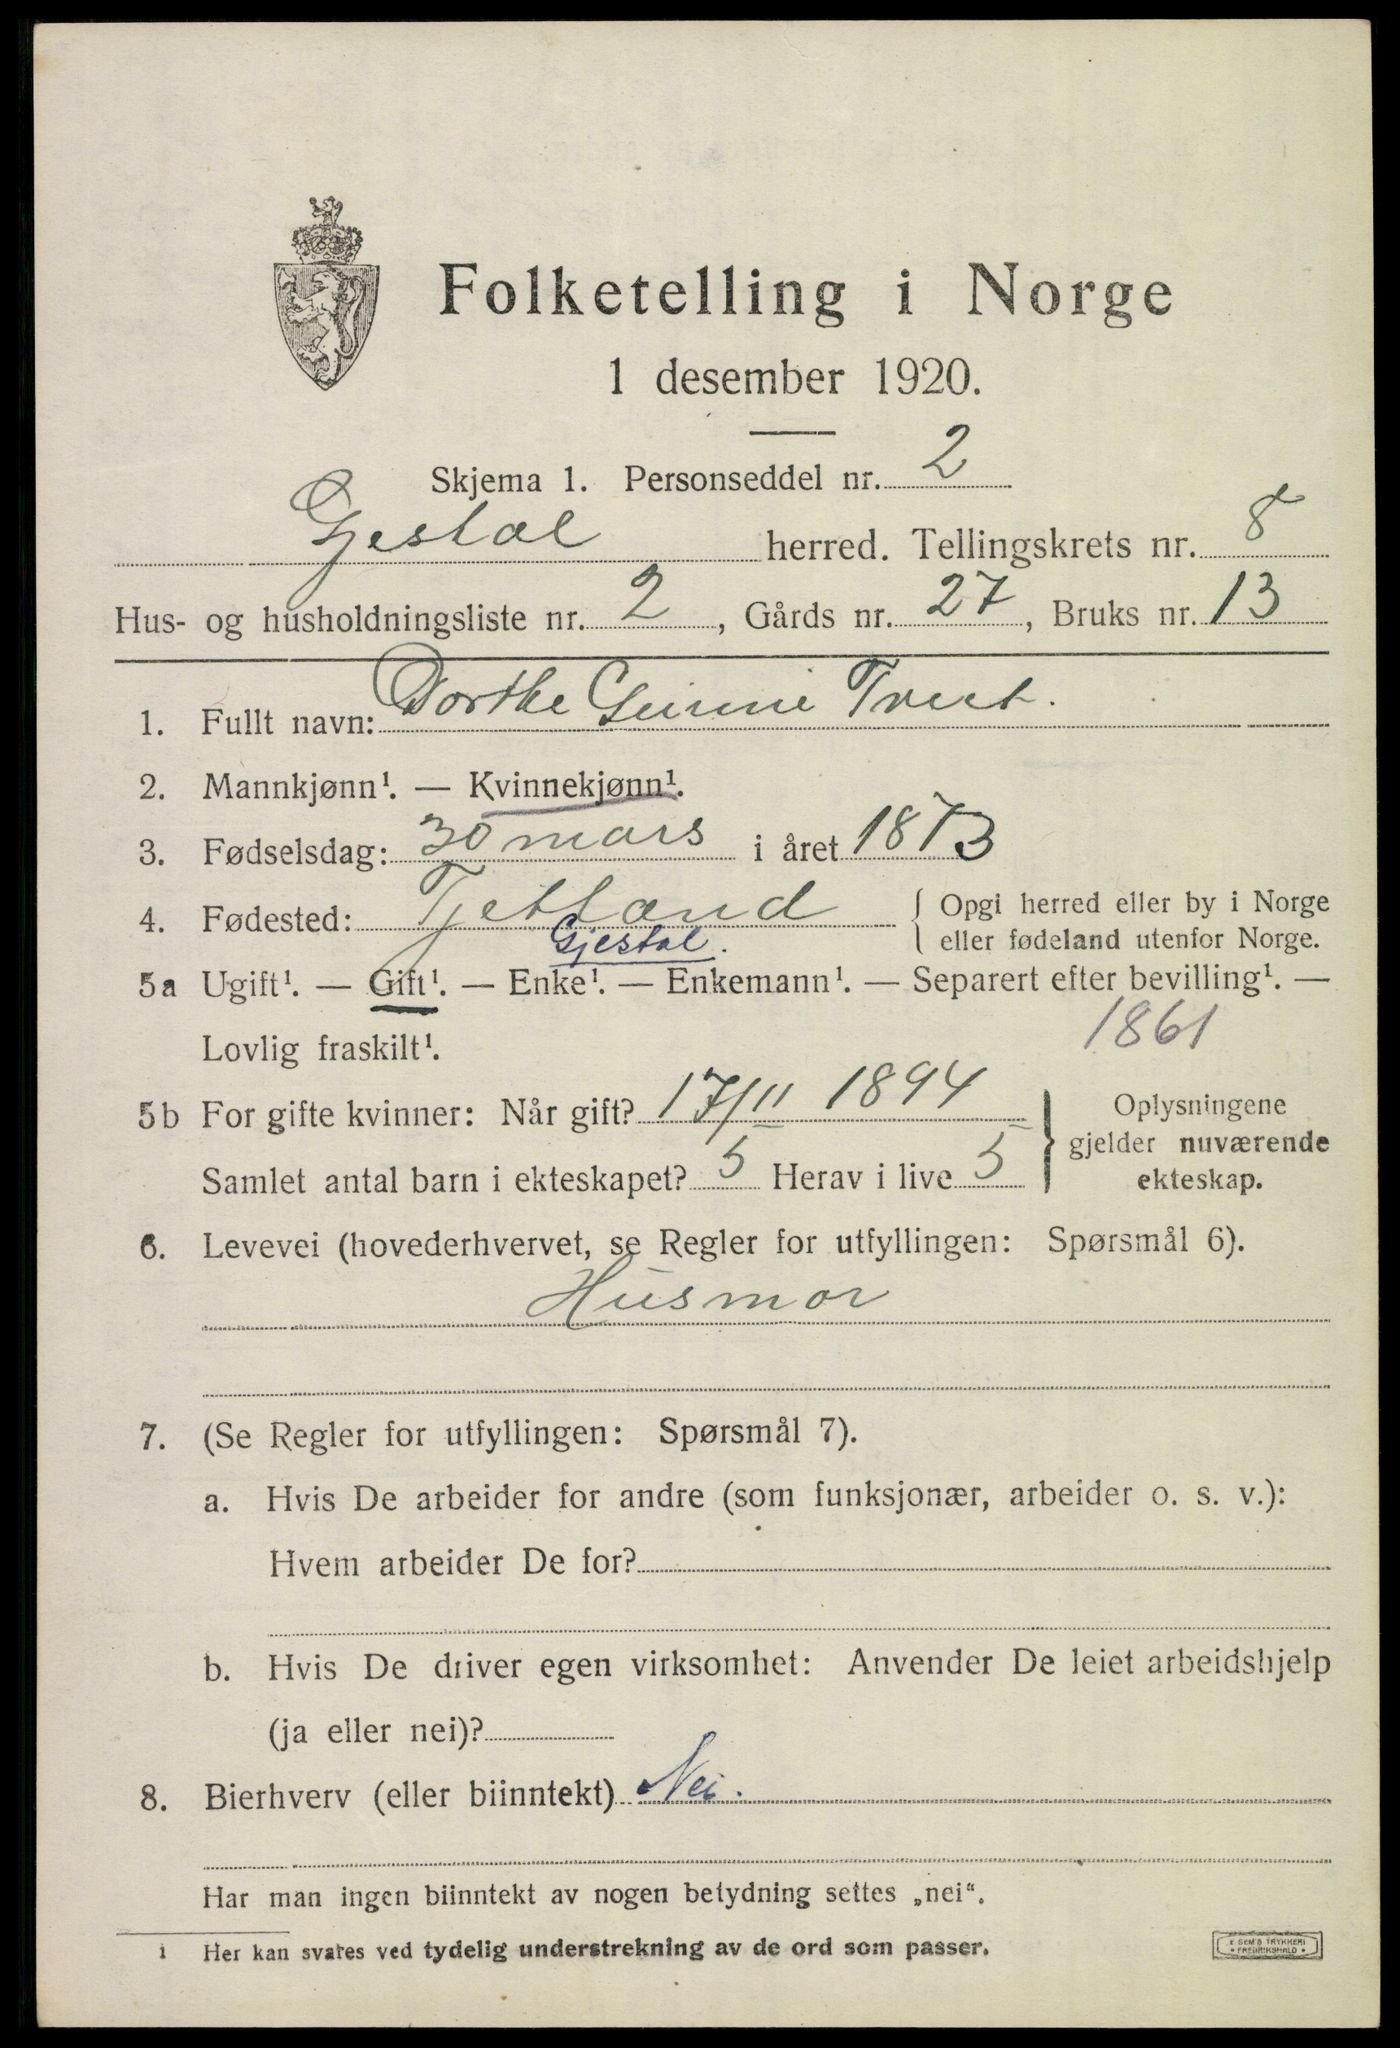 Folketelling i Norge
1 desember 1920.
Skjema 1. Personseddel nr. 2
Gjestal herred. Tellingskrets nr. 8
Hus- og husholdningsliste nr. 2, Gårds nr. 27, Bruks nr. 13
1. Fullt navn: Dorthe Gurine Tveit.
2. Mannkjønn¹. — Kvinnekjønn¹.
3. Fødselsdag: 30 mars i året 1873
4. Fødested: Tjetland { Opgi herred eller by i Norge
Gjestal. eller fødeland utenfor Norge.
5a Ugift¹. — Gift¹. — Enke¹. — Enkemann¹. — Separert efter bevilling¹. —
Lovlig fraskilt¹. 1861
5b For gifte kvinner: Når gift? 17/11 1894 } Oplysningene
gjelder nuværende
Samlet antal barn i ekteskapet? 5 Herav i live 5 ekteskap.
6. Levevei (hovederhvervet, se Regler for utfyllingen: Spørsmål 6).
Husmor
7. (Se Regler for utfyllingen: Spørsmål 7).
a. Hvis De arbeider for andre (som funksjonær, arbeider o. s. v.):
Hvem arbeider De for?
b. Hvis De driver egen virksomhet: Anvender De leiet arbeidshjelp
(ja eller nei)?
8. Bierhverv (eller biinntekt) Nei.
Har man ingen biinntekt av nogen betydning settes „nei“.
1 Her kan svares ved tydelig understrekning av de ord som passer.
E SEM'S TRYKKERI
• FREDRIKSHALD •